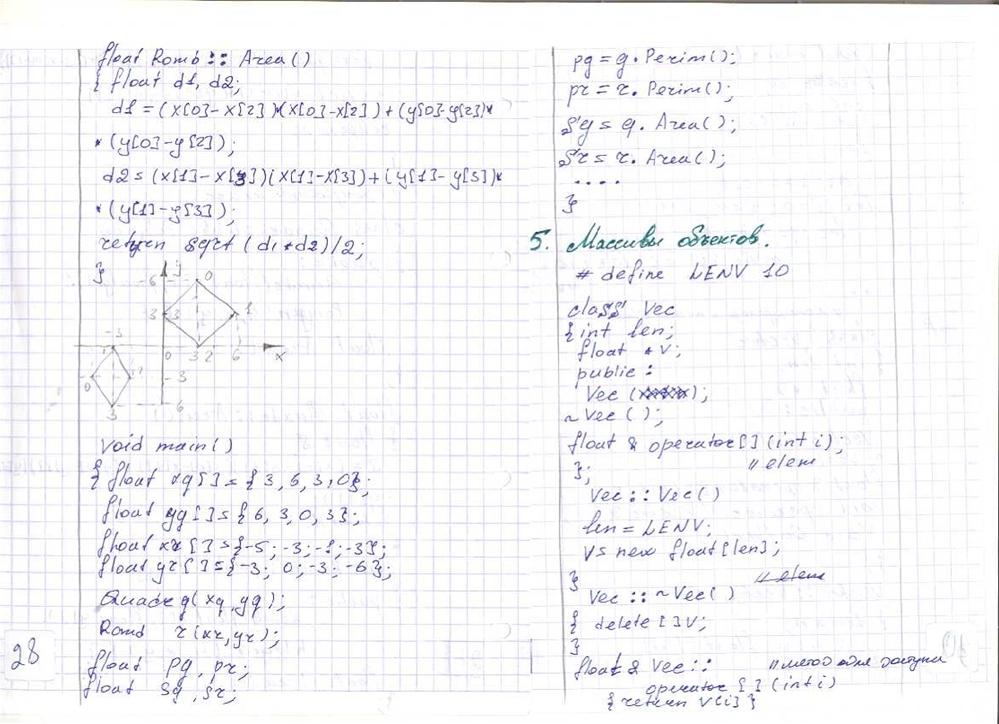 float Romb :: Area()
{ float d1, d2;
d1 = (x[0]-x[2])*(x[0]-x[2])+(y[0]-y[2])*
* (y[0]-y[2]);
d2 = (x[1]-x[3])(x[1]-x[3])+(y[1]-y[3])*
* (y[1]-y[3]);
return sqrt (d1*d2)/2;
}
-6 y 0
3 3 1
-3
0 3 2 6 x
0 1 -3
3 6
void main()
{ float xq[]={3, 6, 3, 0};
float yq[]={6, 3, 0, 3};
float xr[]={-5; -3; -1; -3};
float yr[]={-3; 0; -3; -6};
Quadr q(xq, yq);
Romd r(xr, yr);
float pq, pr;
float Sq, Sr;
28
pq = q. Perim();
pr = r. Perim();
Sq = q. Area();
Sr = r. Area();
....
}
5. Массивы объектов.
# define LENV 10
class Vec
{ int len;
float *v;
public:
Vec ( );
~Vec ();
float & operator[] (int i);
}; // elem
Vec :: Vec()
len = LENV;
v = new float[len];
} // elem
Vec :: ~Vec()
{ delete []v;
}
float & Vec :: // метод для доступа
operator [] (int i)
{return v[i]}